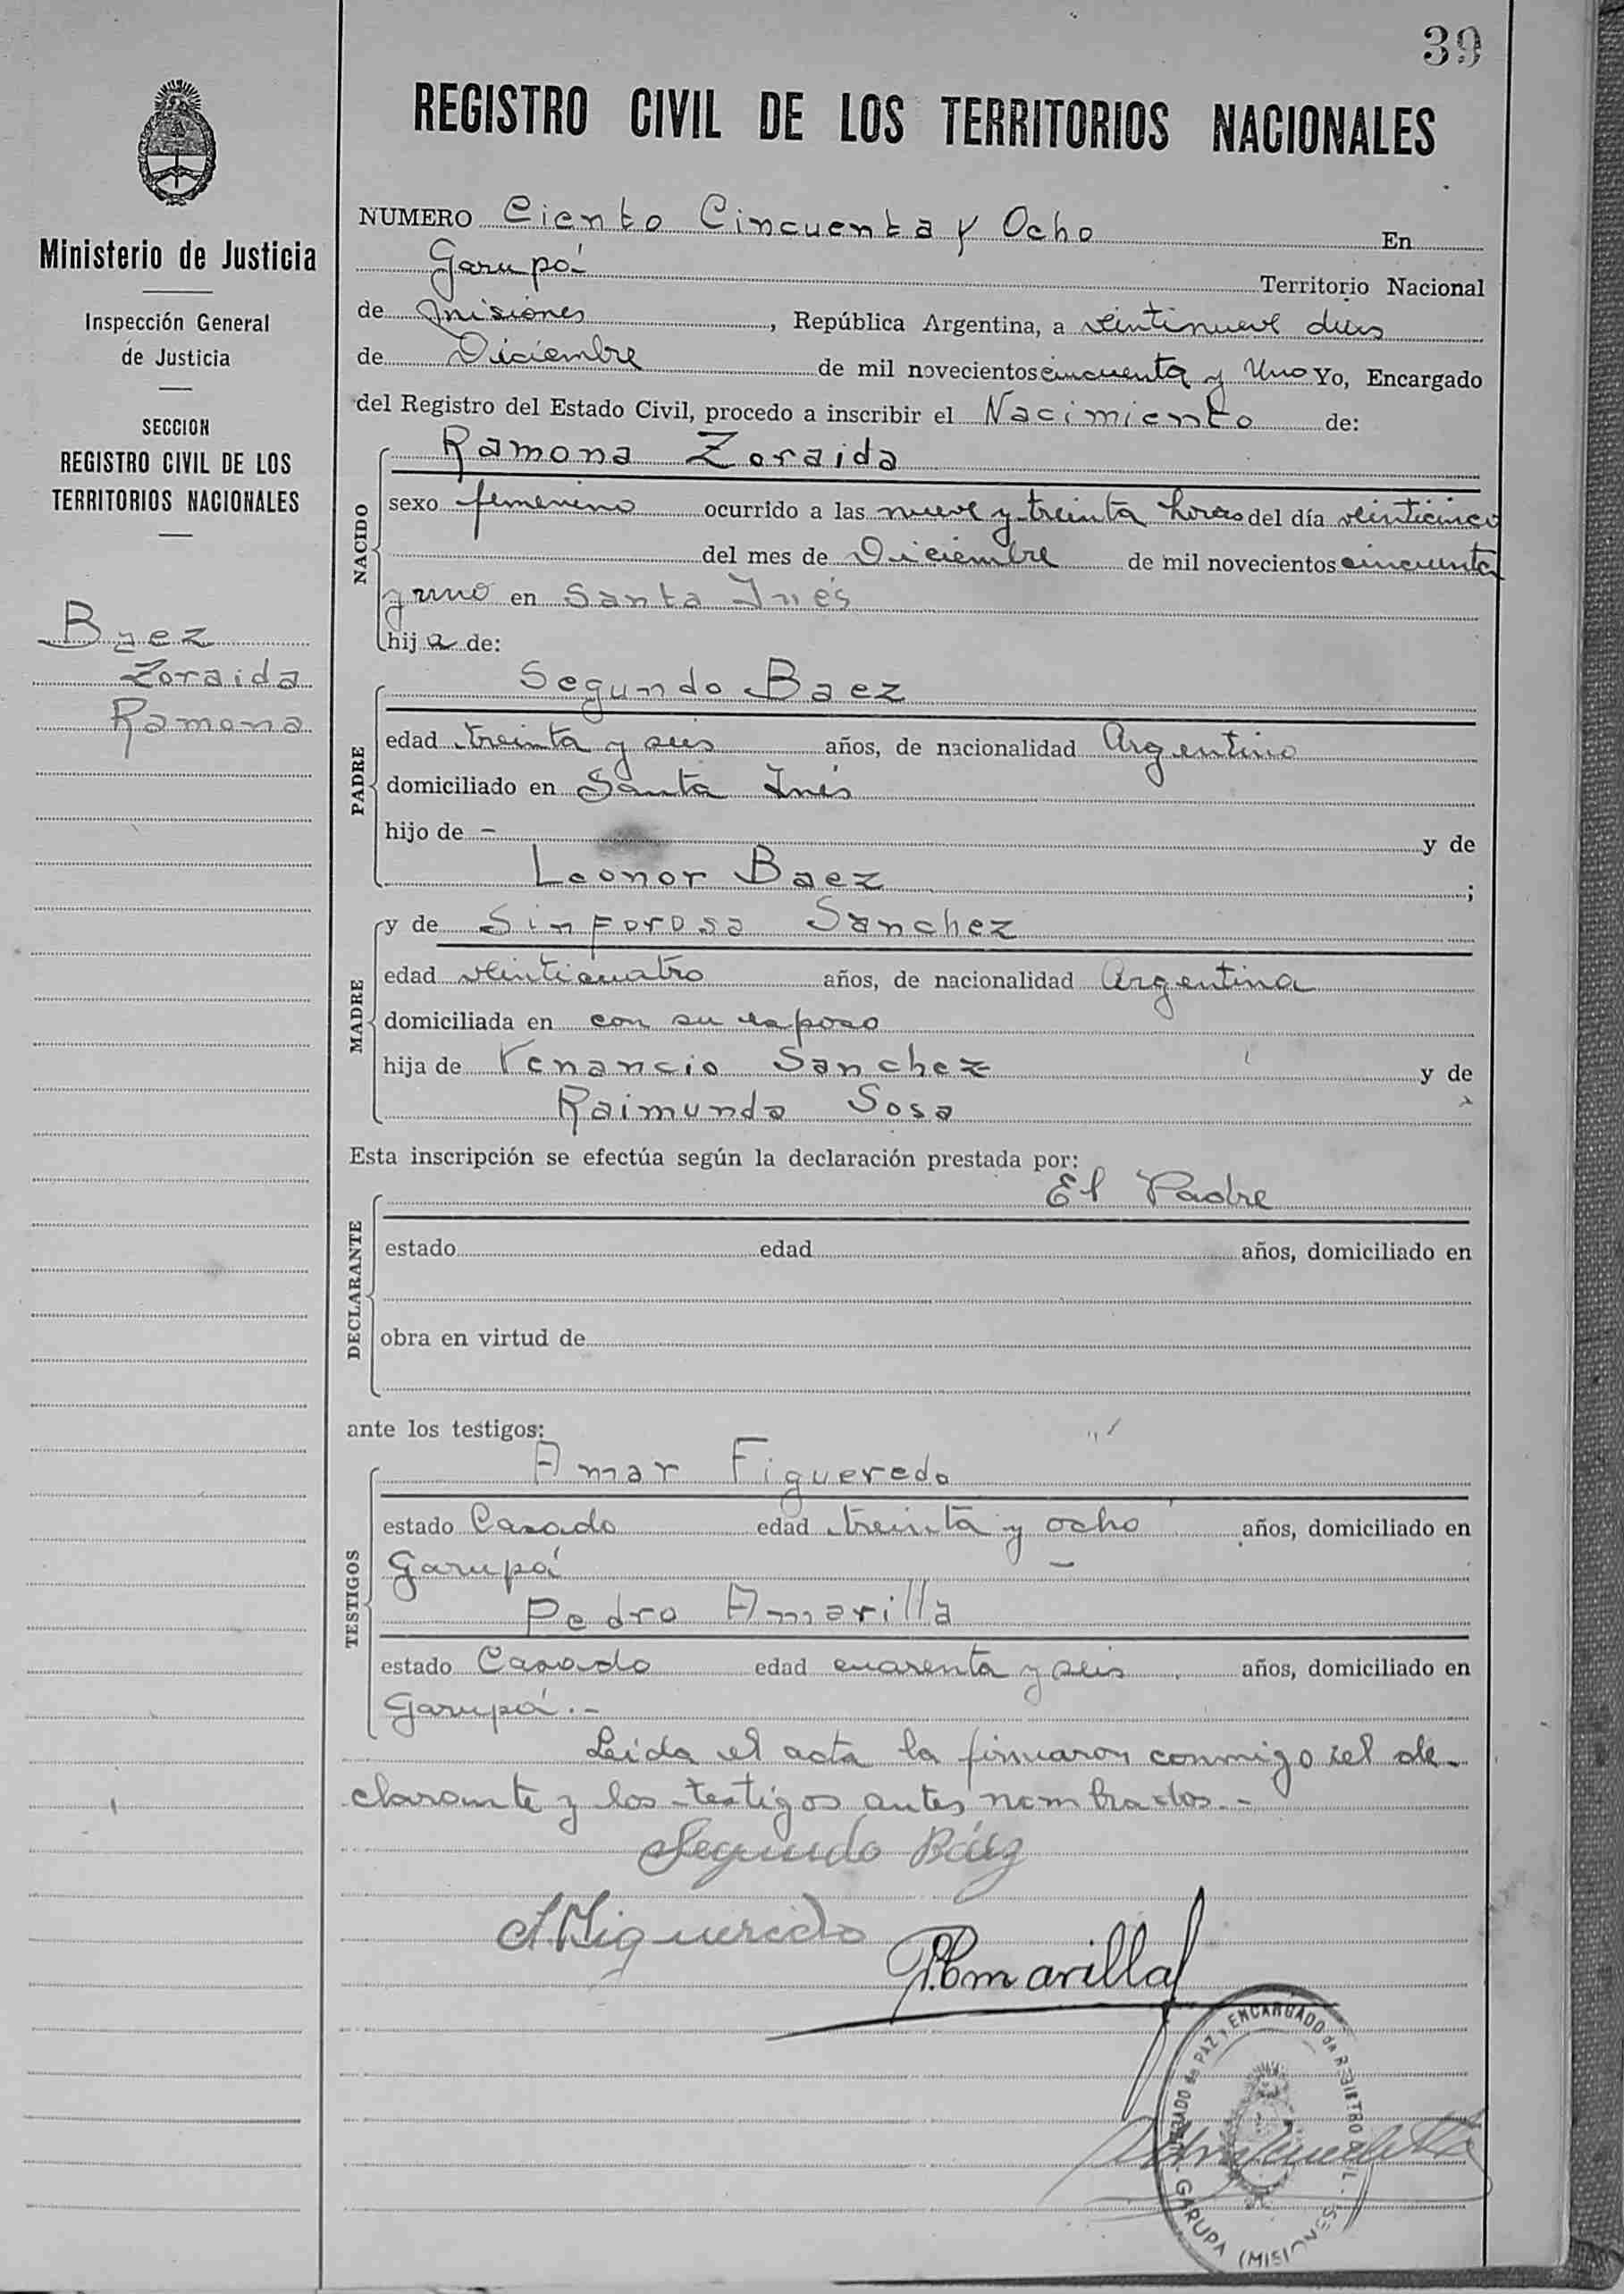 39
REGISTRO CIVIL DE LOS TERRITORIOS NACIONALES
Ministerio de Justicia
Inspección General
de Justicia
SECCION
REGISTRO CIVIL DE LOS
TERRITORIOS NACIONALES
Baez
Zoraida
Ramona
NUMERO Ciento Cincuenta y Ocho En
Garupá Territorio Nacional
de Misiones, República Argentina, a veintinueve dias
de Diciembre de mil novecientos cincuenta y Uno Yo, Encargado
del Registro del Estado Civil, procedo a inscribir el Nacimiento de:
NACIDO
Ramona Zoraida
sexo femenino ocurrido a las nueve y treinta horas del día veinticinco
del mes de Diciembre de mil novecientos cincuenta
y uno en Santa Inés
hija de:
PADRE
Segundo Baez
edad treinta y seis años, de nacionalidad Argentino
domiciliado en Santa Inés
hijo de - y de
Leonor Baez;
MADRE
y de Sinforosa Sanchez
edad veinticuatro años, de nacionalidad Argentina
domiciliada en con su esposo
hija de Venancio Sanchez y de
Raimunda Sosa
Esta inscripción se efectúa según la declaración prestada por:
DECLARANTE
El Padre
estado edad años, domiciliado en
obra en virtud de
ante los testigos:
TESTIGOS
Amar Figueredo
estado Casado edad treinta y ocho años, domiciliado en
Garupá -
Pedro Amarilla
estado Casado edad cuarenta y seis años, domiciliado en
Garupá.-
Leida el acta la firmaron conmigo el de-
clarante y los testigos antes nombrados.-
Segundo Báez
A Figueredo
P. Amarilla
JUZGADO de PAZ y ENCARGADO de REGISTRO CIVIL - GARUPA (MISIONES)